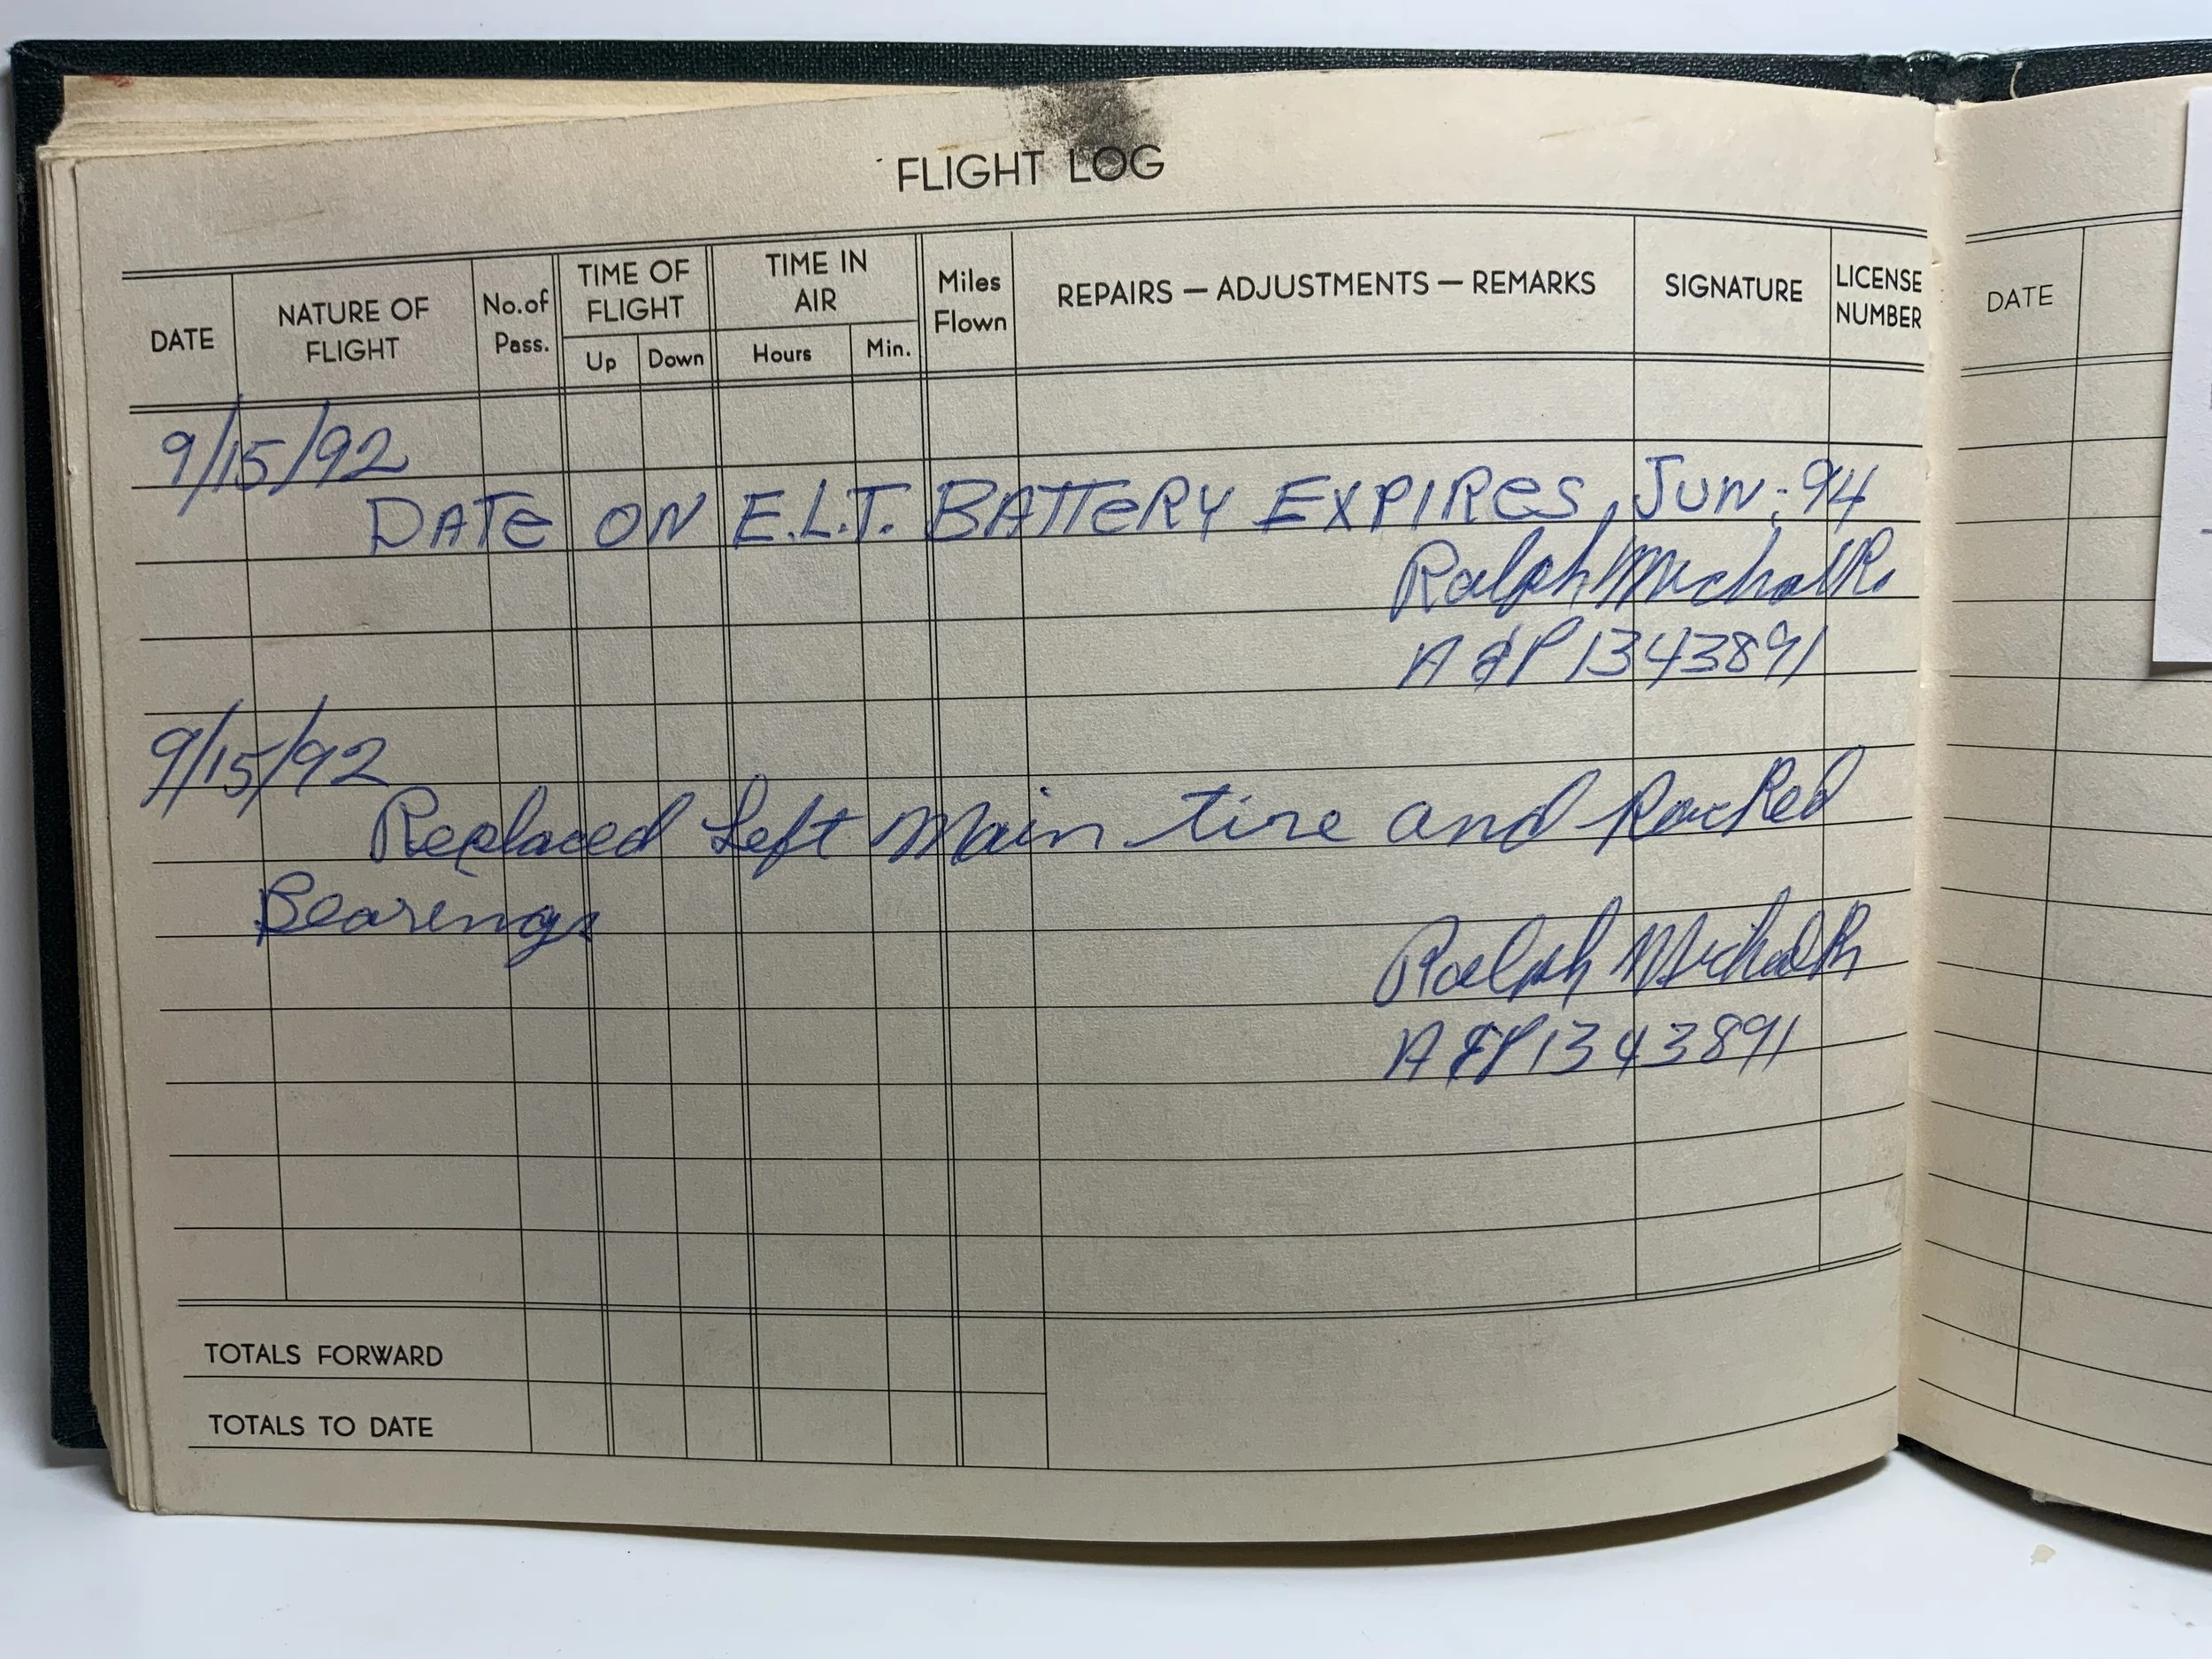 FLIGHT LOG
DATE
NATURE OF
FLIGHT
No. of
Pass.
TIME OF
FLIGHT
Up
Down
TIME IN
AIR
Hours
Min.
Miles
Flown
REPAIRS — ADJUSTMENTS — REMARKS
SIGNATURE
LICENSE
NUMBER
9/15/92
DATE ON E.L.T. BATTERY EXPIRES, JUN. 94
Ralph Michalk
A&P 1343891
9/15/92
Replaced Left Main tire and Packed
Bearings
Ralph Michalk
A&P 1343891
TOTALS FORWARD
TOTALS TO DATE
DATE